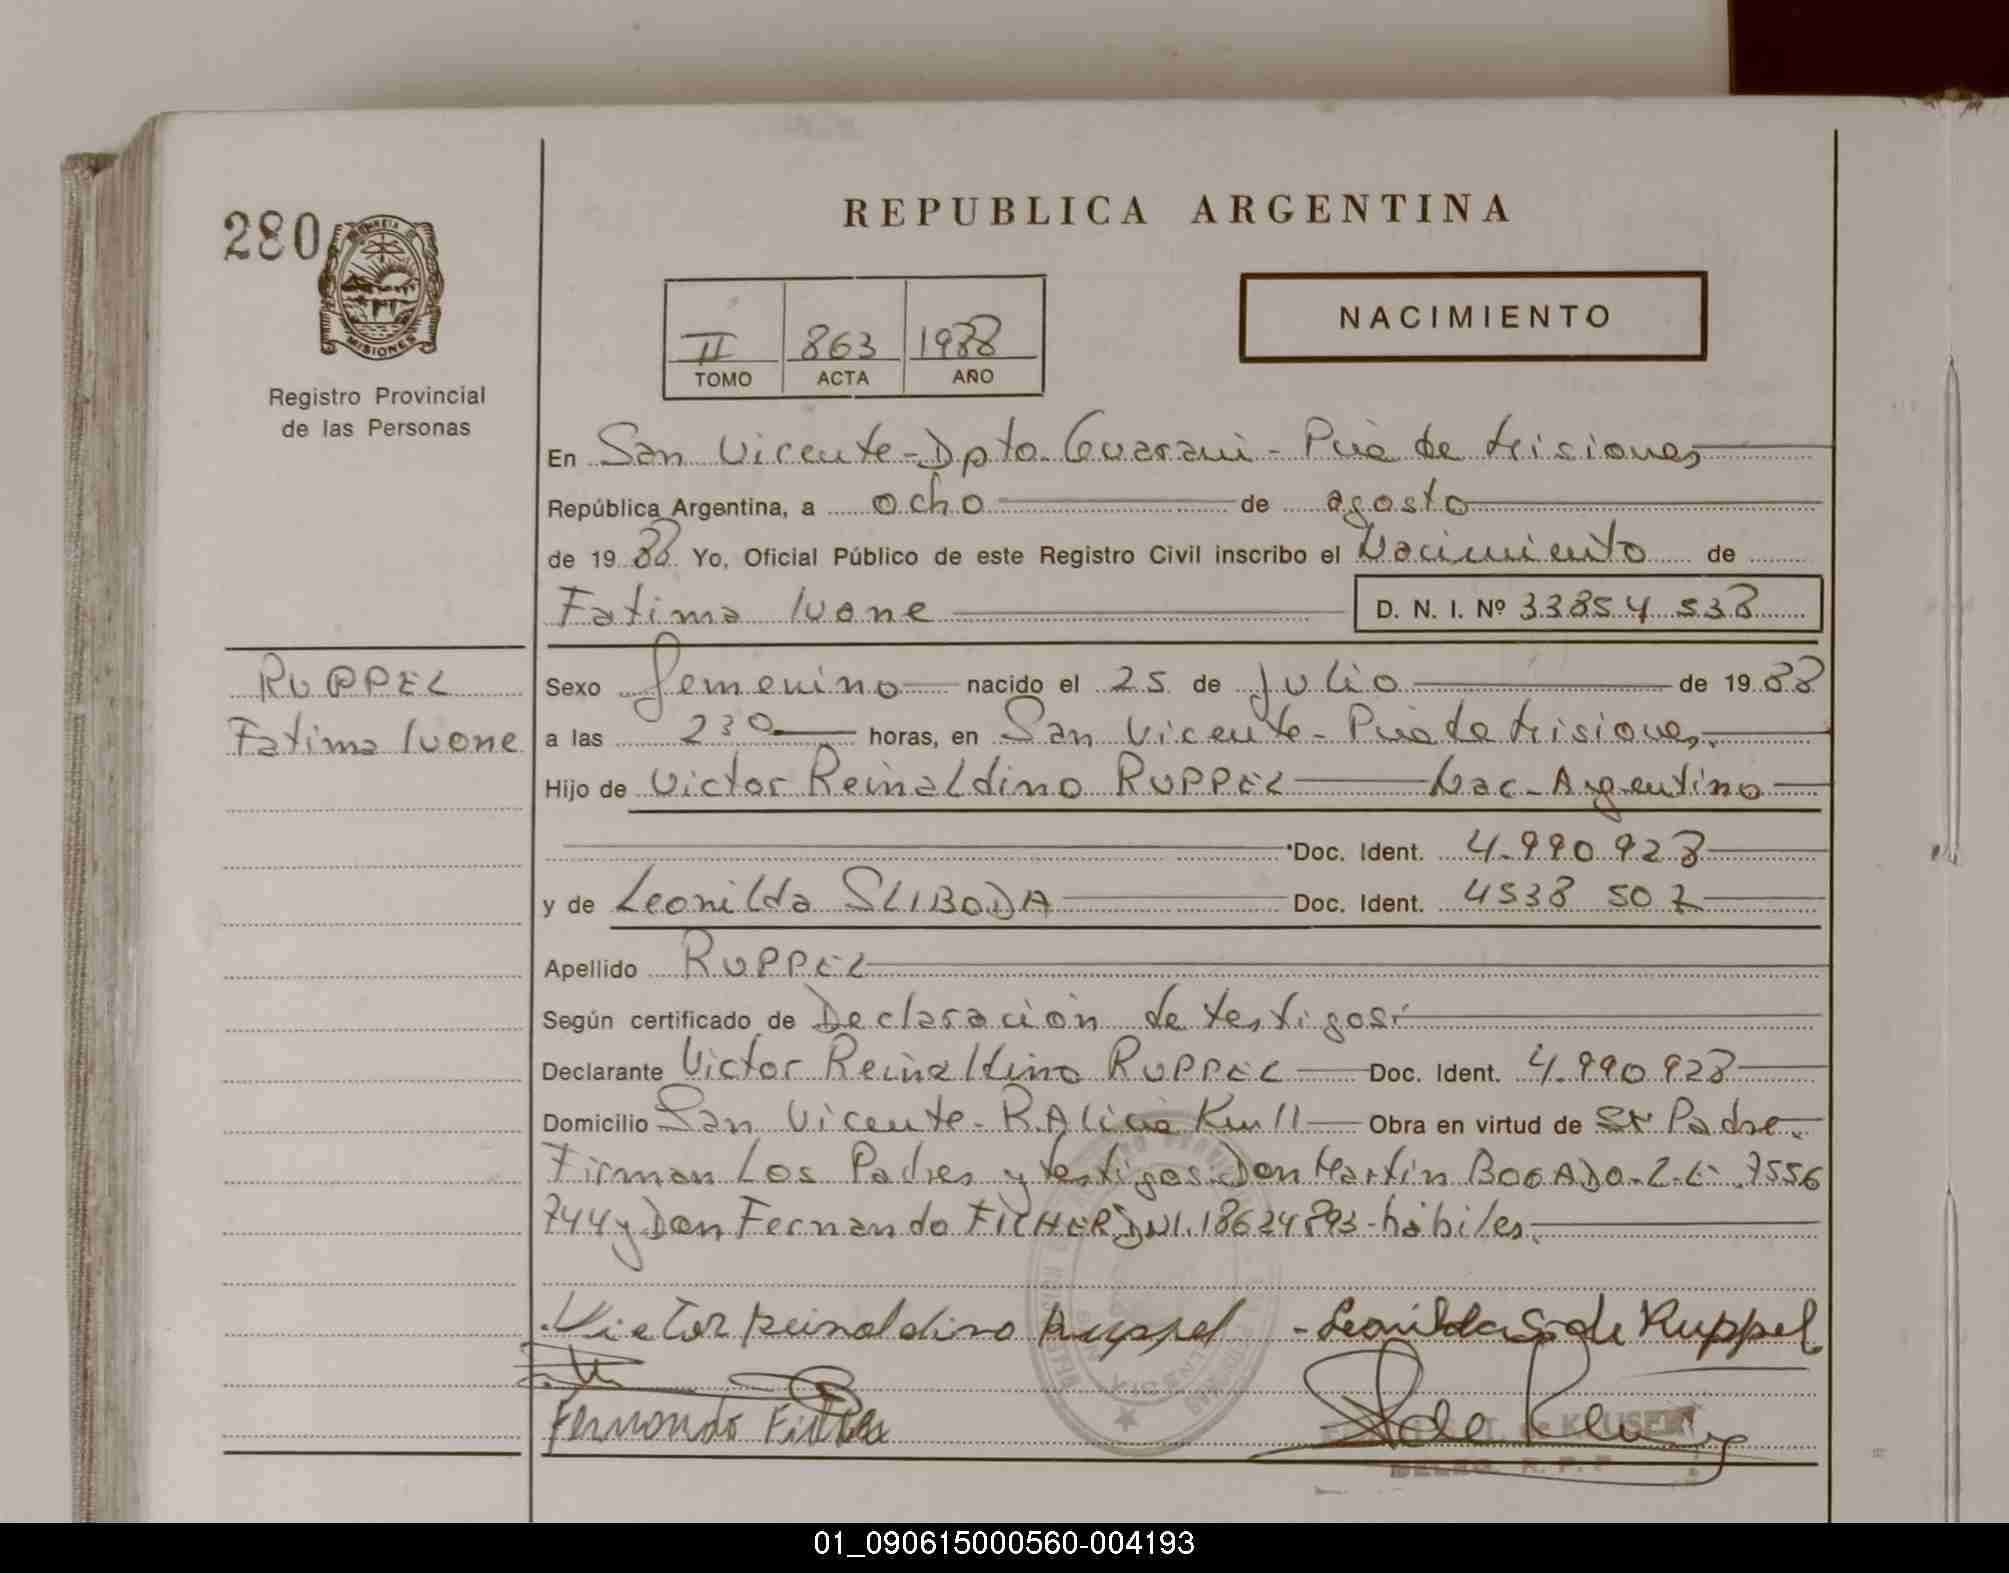 REPUBLICA ARGENTINA
280
MISIONES
Registro Provincial
de las Personas
NACIMIENTO
II 863 1988
TOMO ACTA AÑO
En San Vicente - Dpto Guarani - Pcia de Misiones
República Argentina, a ocho de agosto
de 19 88 Yo, Oficial Público de este Registro Civil inscribo el Nacimiento de
Fatima Ivone D. N. I. Nº 33854 538
RUPPEL
Fatima Ivone
Sexo femenino nacido el 25 de Julio de 19 88
a las 2 30 horas, en San Vicente - Pcia de Misiones.
Hijo de Victor Reinaldino RUPPEL Nac- Argentino
Doc. Ident. 4.990.928
y de Leonilda SLIBODA Doc. Ident. 4538 507
Apellido RUPPEL
Según certificado de Declaración de testigos
Declarante Victor Reinaldino RUPPEL Doc. Ident. 4.990.928
Domicilio San Vicente - R.Alicia Km 11 Obra en virtud de Padre.
Firman Los Padres y testigos Don Martín BOGADO - L.E. 7556
744 y Don Fernando FICHER DNI. 18624893 - hábiles.
Victor Reinaldino Ruppel - Leonilda S. de Ruppel
Fernando
01_090615000560-004193